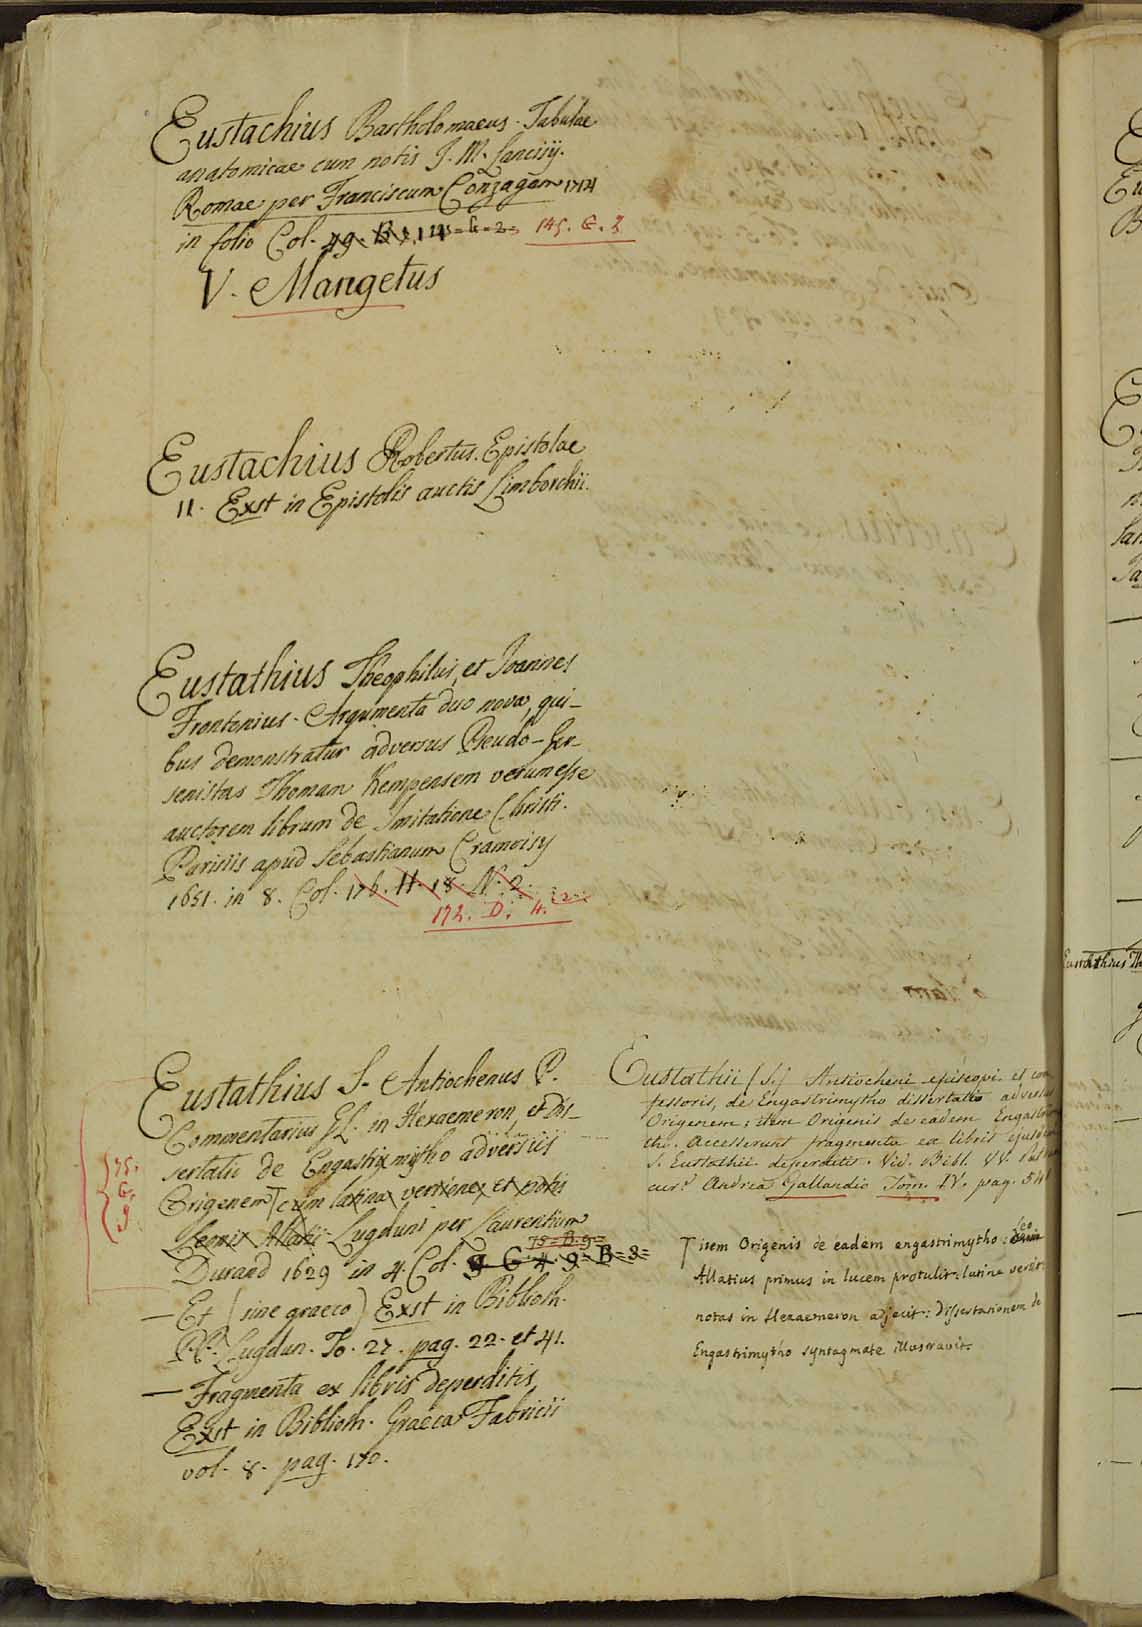 Eustachius Bartholomaeus. Tabulae
anatomicae cum notis J. M. Lancisij.
Romae per Franciscum Gonzagam 1714
in folio Col. 145. G. 2
V. Mangetus
Eustachius Robertus. Epistolae
II. Exst in Epistolis auctis Limborchii.
Eustathius Theophilus, et Joannes
Frontonius. Argumenta duo nova, qui-
bus demonstratur adversus Pseudo-Ger-
senistas Thomam Kempensem verum esse
auctorem librum de Imitatione Christi.
Parisiis apud Sebastianum Cramoisy
1651. in 8. Col. 176. H. 18. N. 2.
172. D. 4.
Eustathius S. Antiochenus P.
Commentarius GL. in Hexaemeron, et dis-
sertatio de Engastrimytho adversus
Origenem cum latina versione, et notis
Leonis Allatii Lugduni per Laurentium
75=B.9=
Durand 1629 in 4. Col. 9=B=8=
75.
G.
9
— Et (sine graeco) Exst in Biblioth.
PP. Lugdun. To. 27. pag. 22. et 41.
— Fragmenta ex libris deperditis
Exst in Biblioth. Graeca Fabricii
vol. 8. pag. 170.
Eustathii (S.) Antiocheni episcopi et con
fessoris, de Engastrimytho dissertatio adversus
Origenem; item Origenis de eadem Engastrim
tho. Accesserunt fragmenta ex libris ejusdem
S. Eustathii deperditis. Vid. Bibl. VV.
cur. Andrea Gallandio Tom. IV. pag. 541
T item Origenis de eadem engastrimytho: Leo
Allatius primus in lucem protulit: latine vertit
notas in Hexaemeron adjecit: Dissertationem de
Engastrimytho syntagmate illustravit.
Eustathius Th